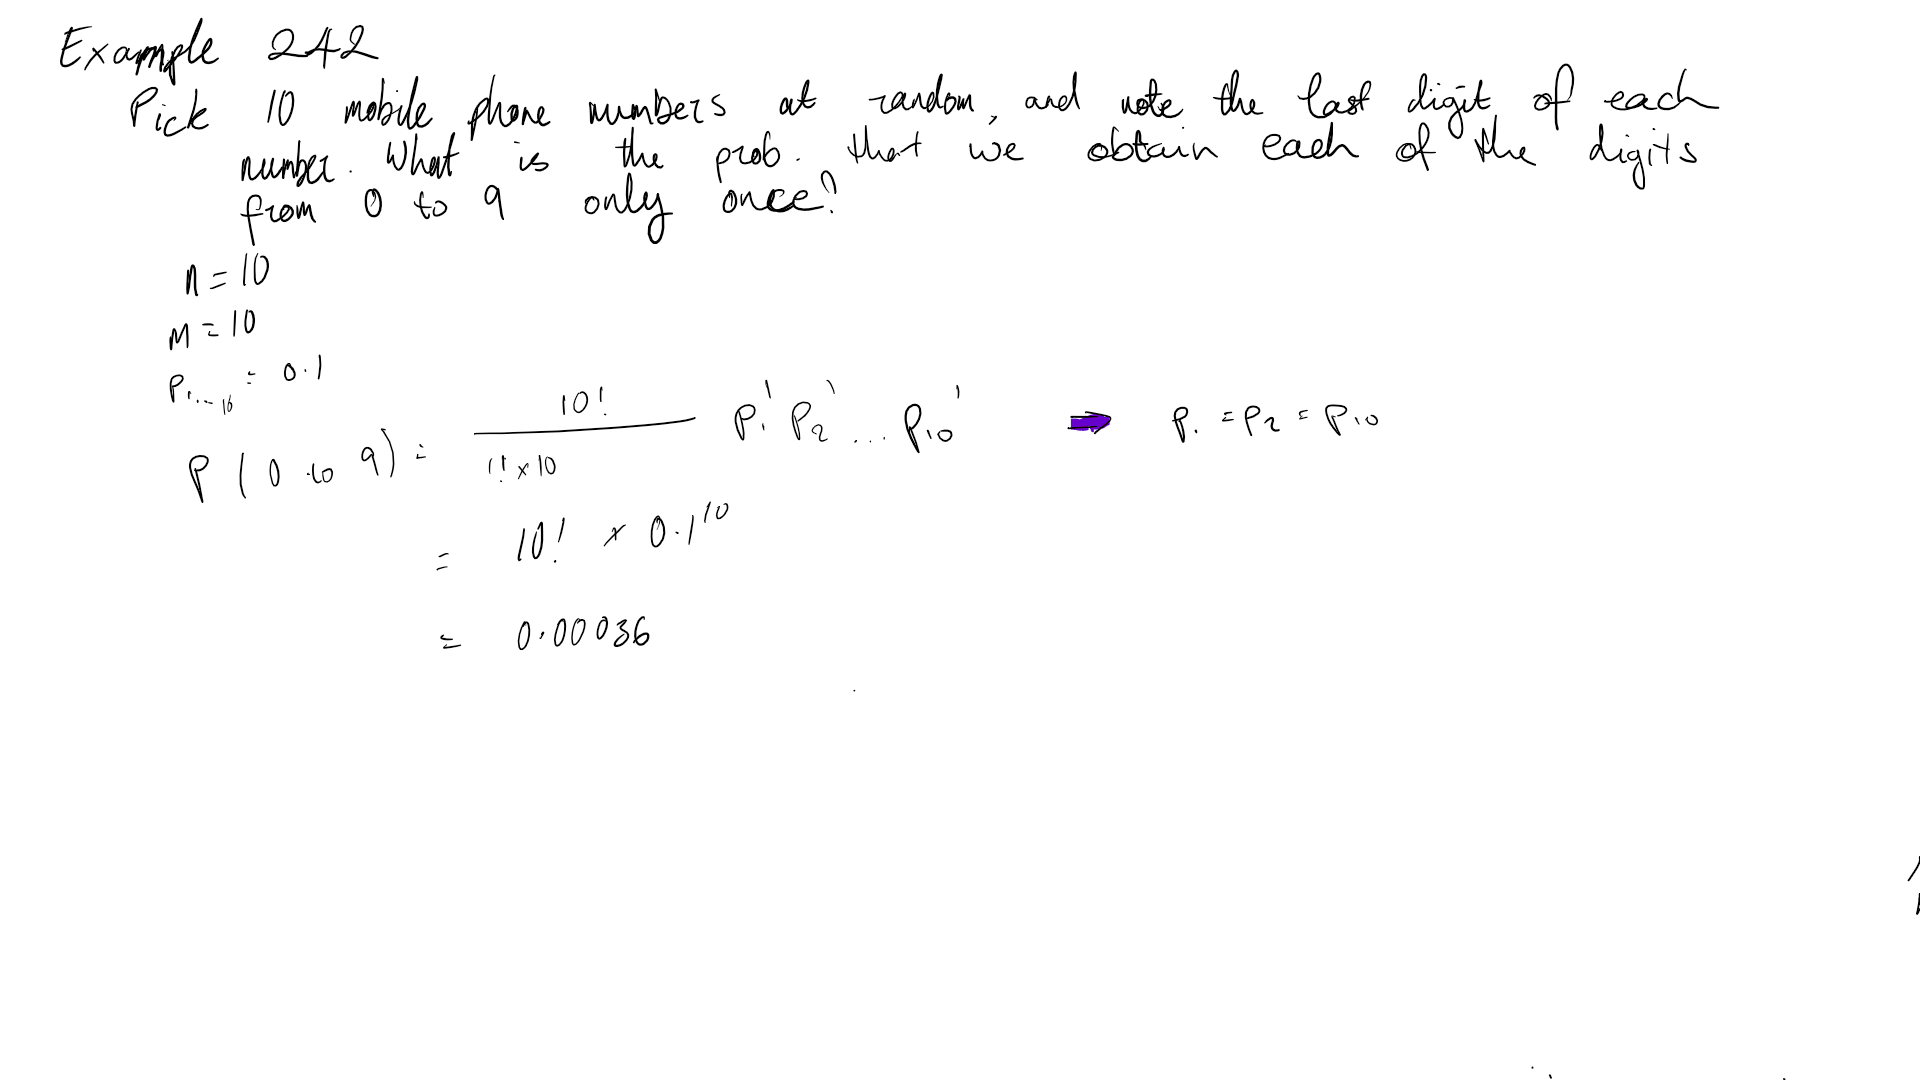 Example 242
Pick 10 mobile phone numbers at random, and note the last digit of each
number. What is the prob. that we obtain each of the digits
from 0 to 9 only once?
n = 10
m = 10
P1...10 = 0.1
P(0 to 9) = 10! / 1! × 10 P1^1 P2^1 ... P10^1 → P1 = P2 = P10
= 10! × 0.1^10
= 0.00036